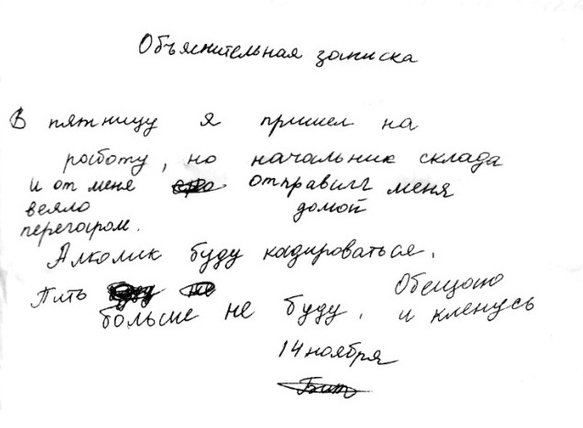 Объяснительная записка
В пятницу я пришел на
работу, но начальник склада
и от меня отправил меня
веяло домой
перегаром.
Алколик буду кадироваться.
Пить
больше не буду. Обещаю
и кленусь
14 ноября